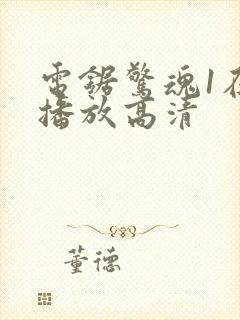 電鋸驚魂1在
播放高清
董德